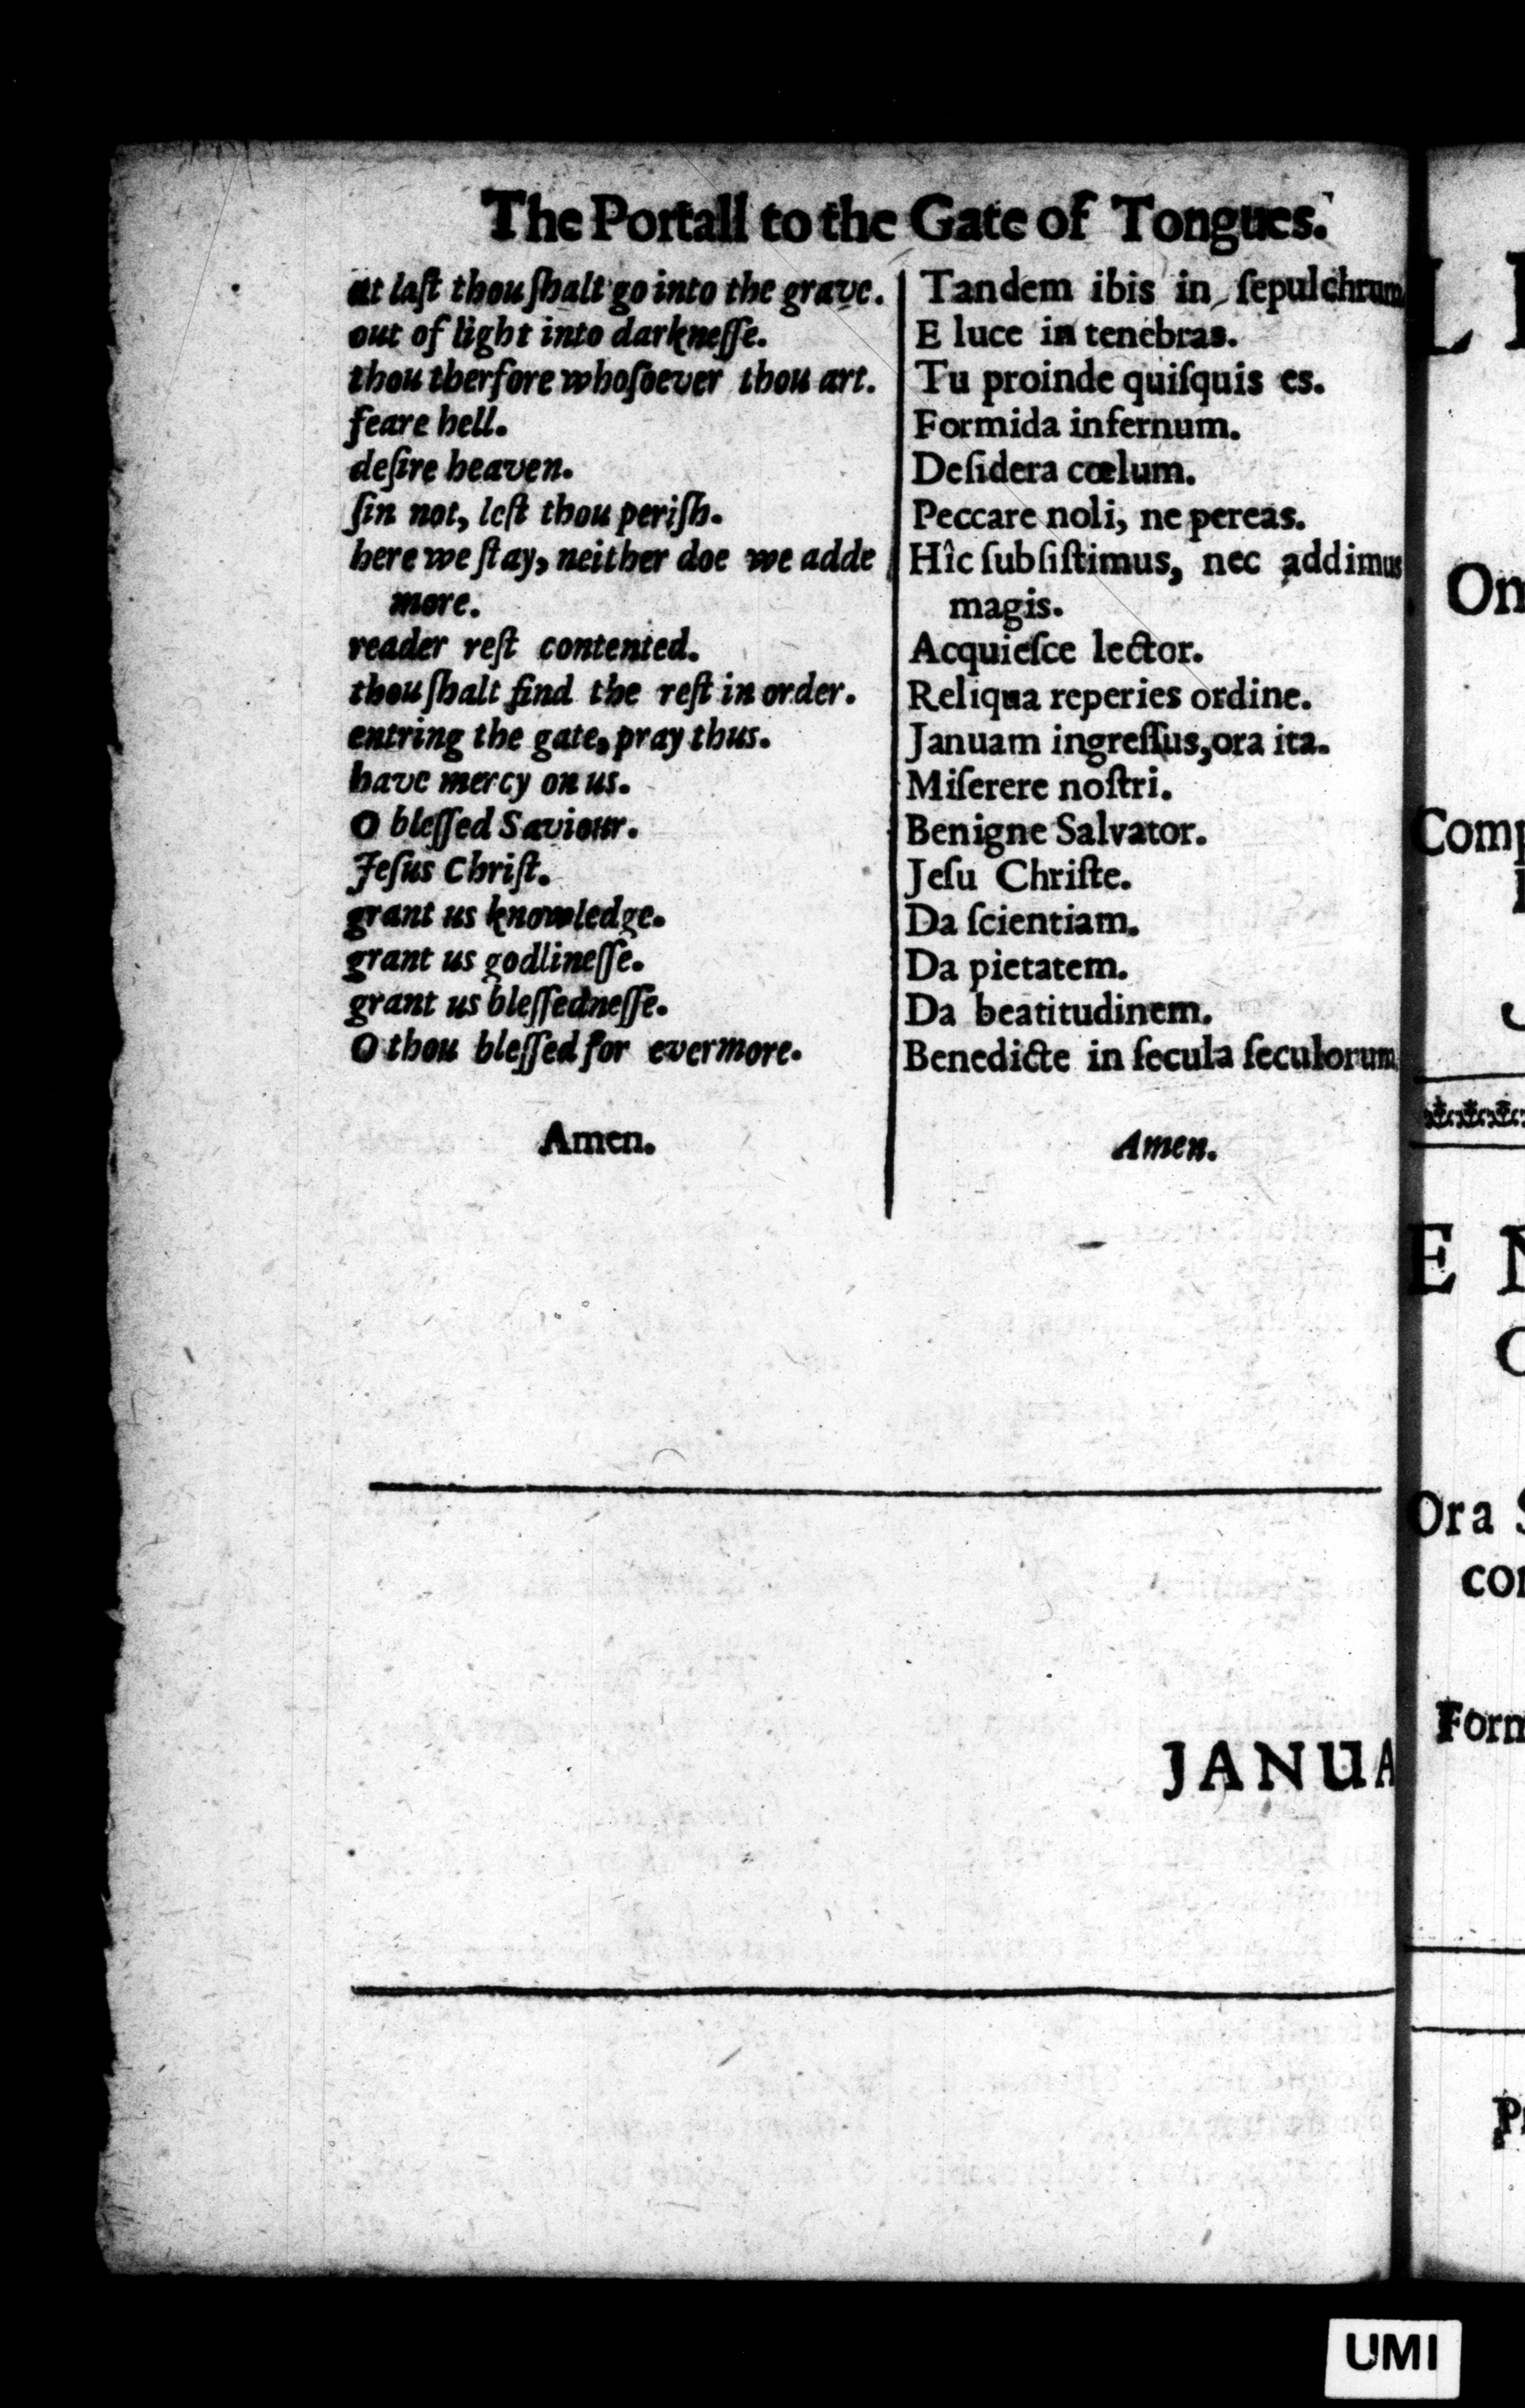 The Portall to the Gate of Tongues.
at laſt thou ſhalt go into the grave.
out of light into darkneſſe.
thou therfore whoſoever thou art.
feare hell.
deſire heaven.
ſin not, leſt thou periſh.
here we ſtay, neither doe we adde
more.
reader reſt contented.
thou ſhalt find the reſt in order.
entring the gate, pray thus.
have mercy on us.
O bleſſed Saviour.
Jeſus Chriſt.
grant us knowledge.
grant us godlineſſe.
grant us bleſſedneſſe.
O thou bleſſed for evermore.
Amen.
Tandem ibis in ſepulchrum
E luce in tenebras.
Tu proinde quiſquis es.
Formida infernum.
Deſidera cœlum.
Peccare noli, ne pereas.
Hîc ſubſiſtimus, nec addimus
magis.
Acquieſce lector.
Reliqua reperies ordine.
Januam ingreſſus, ora ita.
Miſerere noſtri.
Benigne Salvator.
Jeſu Chriſte.
Da ſcientiam.
Da pietatem.
Da beatitudinem.
Benedicte in ſecula ſeculorum
Amen.
JANUA
Om
Comp
E N
Ora
con
Form
UMI